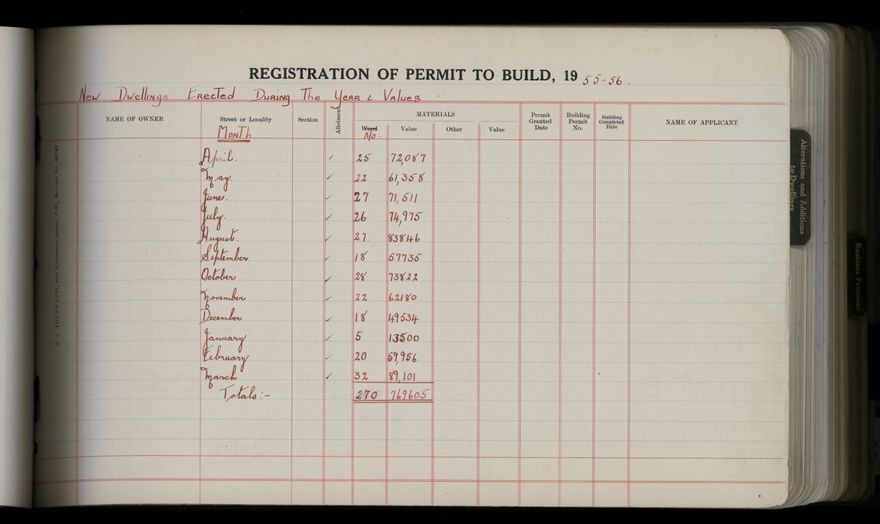 REGISTRATION OF PERMIT TO BUILD, 1955-56.
New Dwellings Erected During The Year & Values
NAME OF OWNER Street or Locality Section Allotment MATERIALS Permit Granted Date Building Permit No. Building Completed Date NAME OF APPLICANT
Wood Value Other Value
Month No.
April. ✓ 25 72,087
May. ✓ 22 61,358
June. ✓ 27 71,511
July. ✓ 26 74,975
August. ✓ 27. 83846
September ✓ 18 57735
October ✓ 28 73822
November ✓ 22 62180
December ✓ 18 49534
January ✓ 5 13500
February ✓ 20 59,956
March ✓ 32 89,101
Totals:- 270 769605
Alterations and Additions
to Dwellings
Business Premises